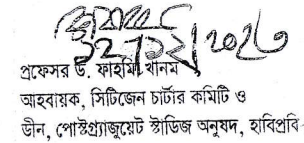 ১২/১২/২০২৩
প্রফেসর ড. ফাহিমা খানম
আহবায়ক, সিটিজেন চার্টার কমিটি ও
ডীন, পোস্টগ্র্যাজুয়েট স্টাডিজ অনুষদ, হাবিপ্রবি